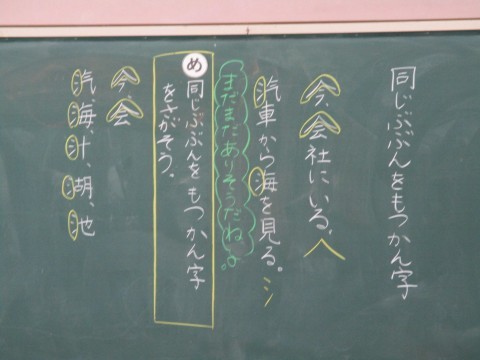 同じぶぶんをもつかん字
今、会社にいる。𠆢
汽車から海を見る。氵
まだまだありそうだね。
め
同じぶぶんをもつかん字
をさがそう。
今、会
汽、海、汁、湖、池